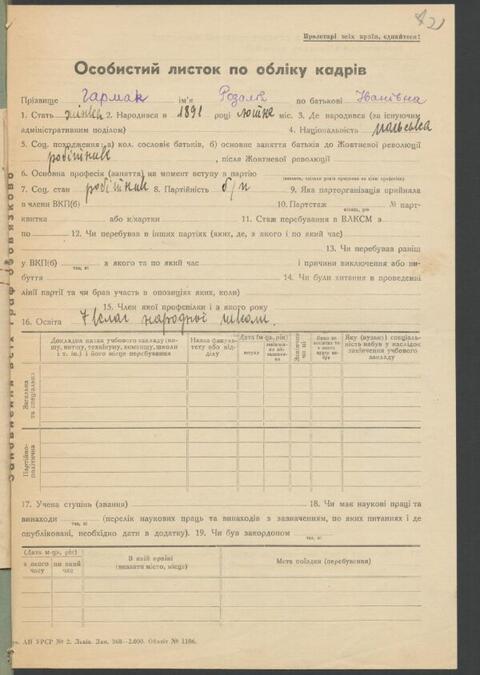 Пролетарі всіх країн, єднайтеся!
Особистий листок по обліку кадрів
Прізвище Гармак ім'я Розалія по батькові Іванівна
1. Стать жіноч 2. Народився в 1891 році лютня міс. 3. Де народився (за існуючим
адміністративним поділом) 4. Національність польська
5. Соц. походження: а) кол. сословіє батьків, б) основне заняття батьків до Жовтневої революції
робітник, після Жовтневої революції
6. Основна професія (заняття) на момент вступу в партію
7. Соц. стан робітник 8. Партійність б/п 9. Яка парторганізація прийняла
в члени ВКП(б) 10. Партстаж № парт-
місяць, рік
квитка або к/картки 11. Стаж перебування в ВЛКСМ з
по 12. Чи перебував в інших партіях (яких, де, з якого і по який час)
13. Чи перебував раніш
у ВКП(б) а з якого та по який час і причини виключення або ви-
так, ні
буття 14. Чи були хитання в проведенні
лінії партії та чи брав участь в опозиціях яких, коли)
15. Член якої профспілки і з якого року
16. Освіта 4 клас народної школи.
Докладна назва учбового закладу (ви-
шу, втишу, технікуму, комвищу, школи
і т. ін.) і його місце перебування
Назва факуль-
тету або від-
ділу
Дата (м-ць, рік)
вступу
Закінчив
чи ні
Яку (вузьку) спеціаль-
ність набув у наслідок
закінчення учбового
закладу
Загальна
та спеціальна
Партійно-
політична
17. Учена ступінь (звання) 18. Чи має наукові праці та
винаходи (перелік наукових праць та винаходів з зазначенням, по яких питаннях і де
так, ні
опубліковані, необхідно дати в додатку). 19. Чи був закордоном
так, ні
Дата м-ць, рік)
з якого
часу
по який
час
В якій країні
(вказати місто, місце)
Мета поїздки (перебування)
АН УРСР № 2. Львів. Зам. 368—2.000. Обліт № 1186.